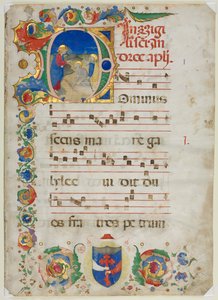 In uigi
an
dree apli.
Ominus
secus ma re ga
lylee ui dit du
os fra tres pe trum